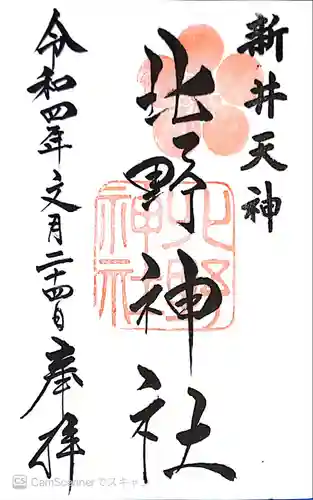 新井天神
北野神社
北野神社
令和四年文月二十四日
奉拝
CS CamScannerでスキャン